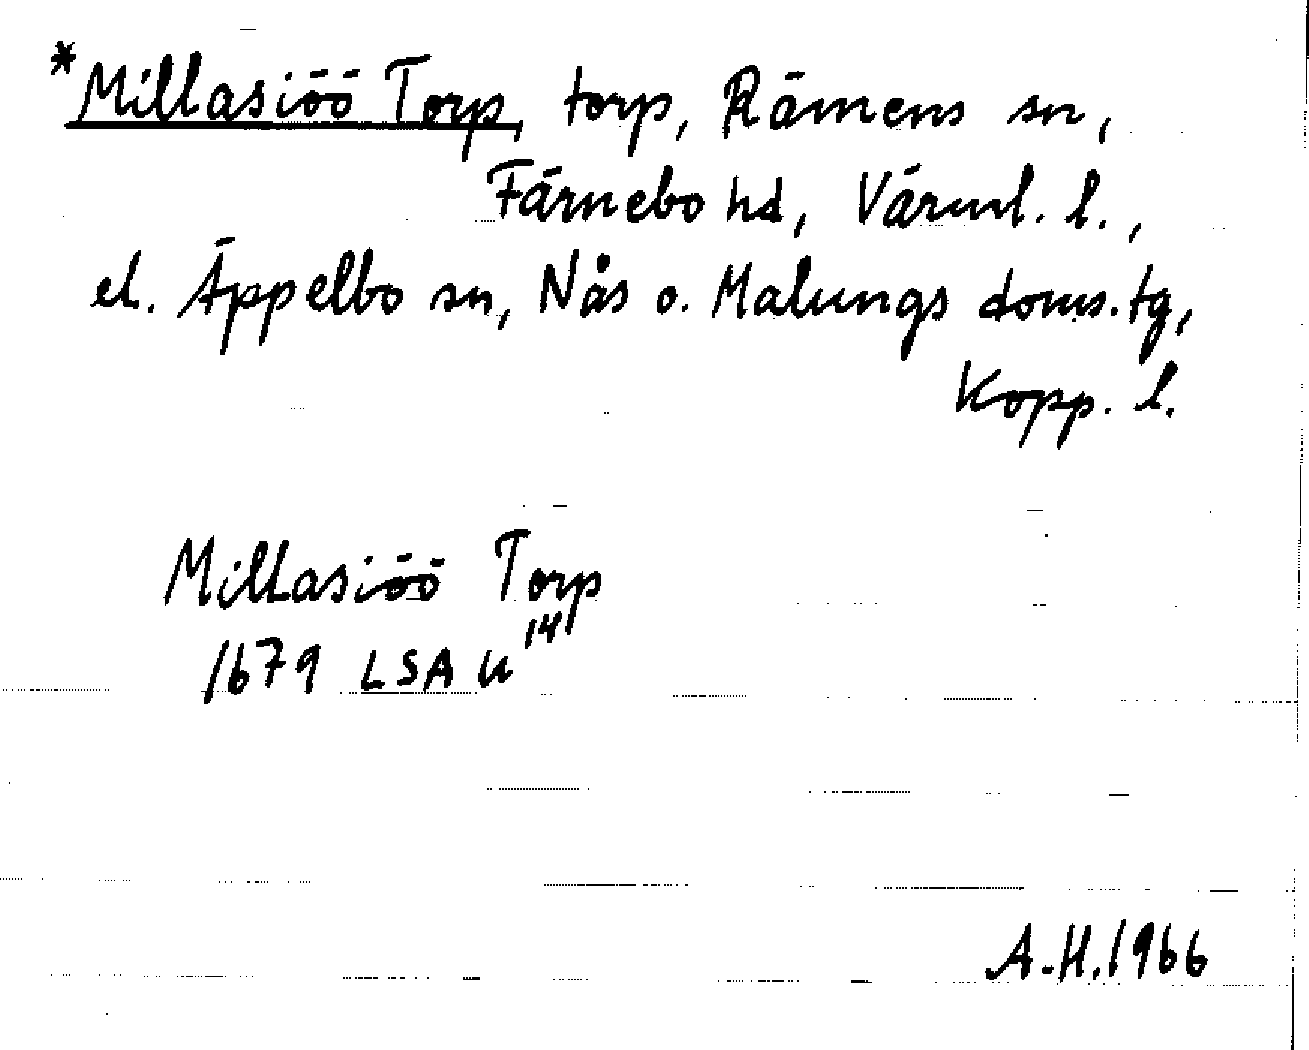 *Millasiöö Torp, torp, Rämens sn,
Färnebo hd, Värml. l.,
el. Äppelbo sn, Nås o. Malungs doms.tg,
Kopp. l.
Millasiöö Torp
1679 LSA U¹⁴¹
A.H.1966